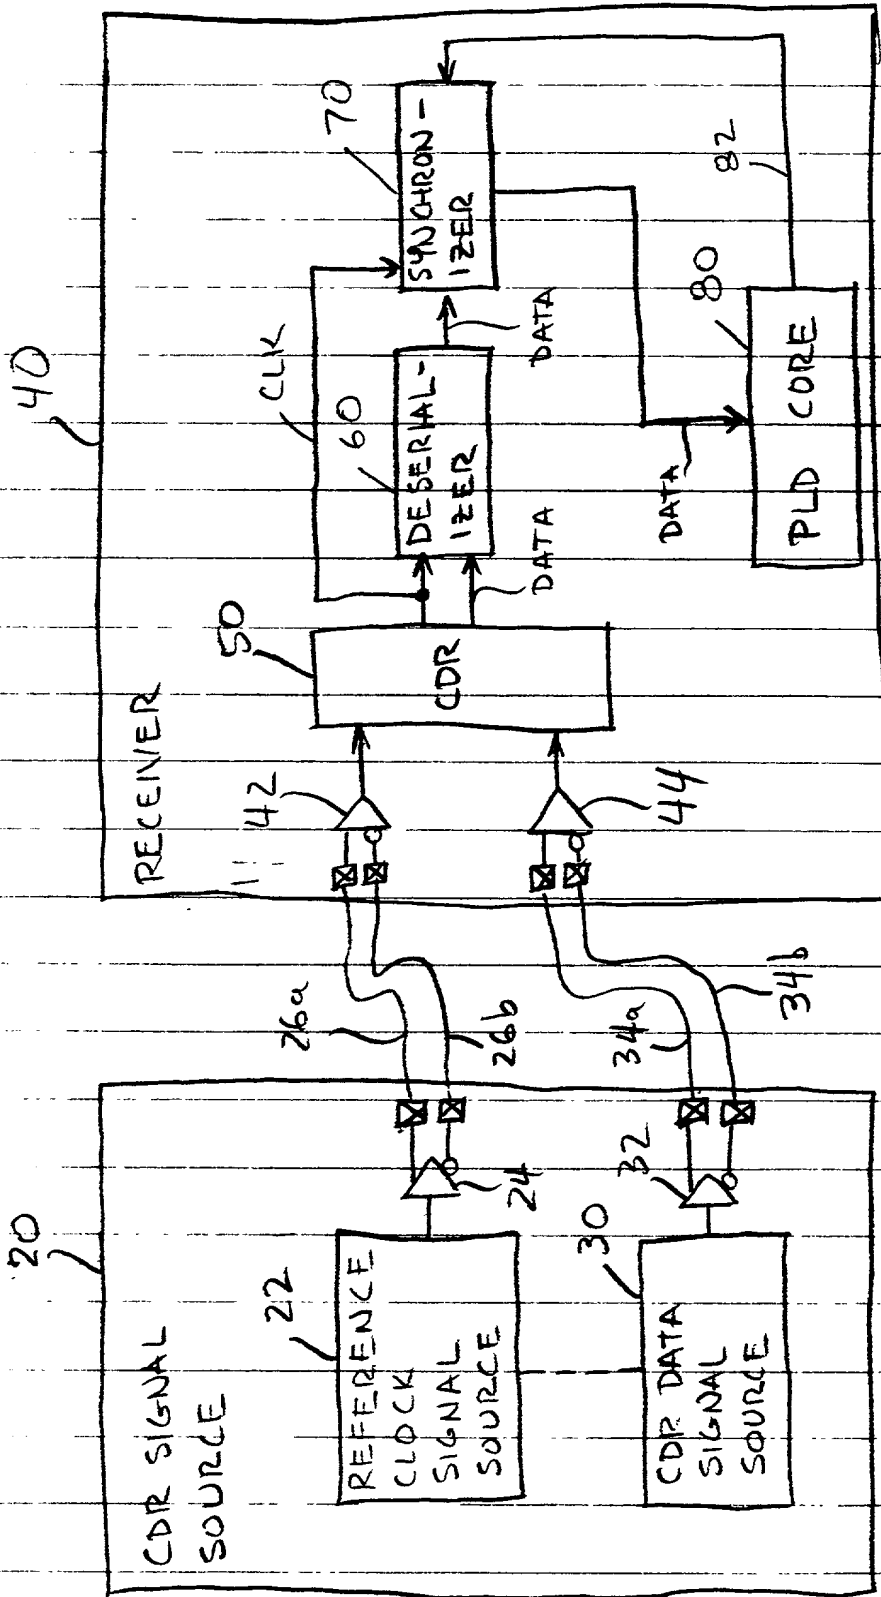 20
CDR SIGNAL
SOURCE
22
REFERENCE
CLOCK
SIGNAL
SOURCE
24
30
CDR DATA
SIGNAL
SOURCE
32
26a
26b
34a
34b
40
RECEIVER
42
44
50
CDR
CLK
60
DESERIAL-
IZER
DATA
DATA
70
SYNCHRON-
IZER
DATA
80
PLD CORE
82